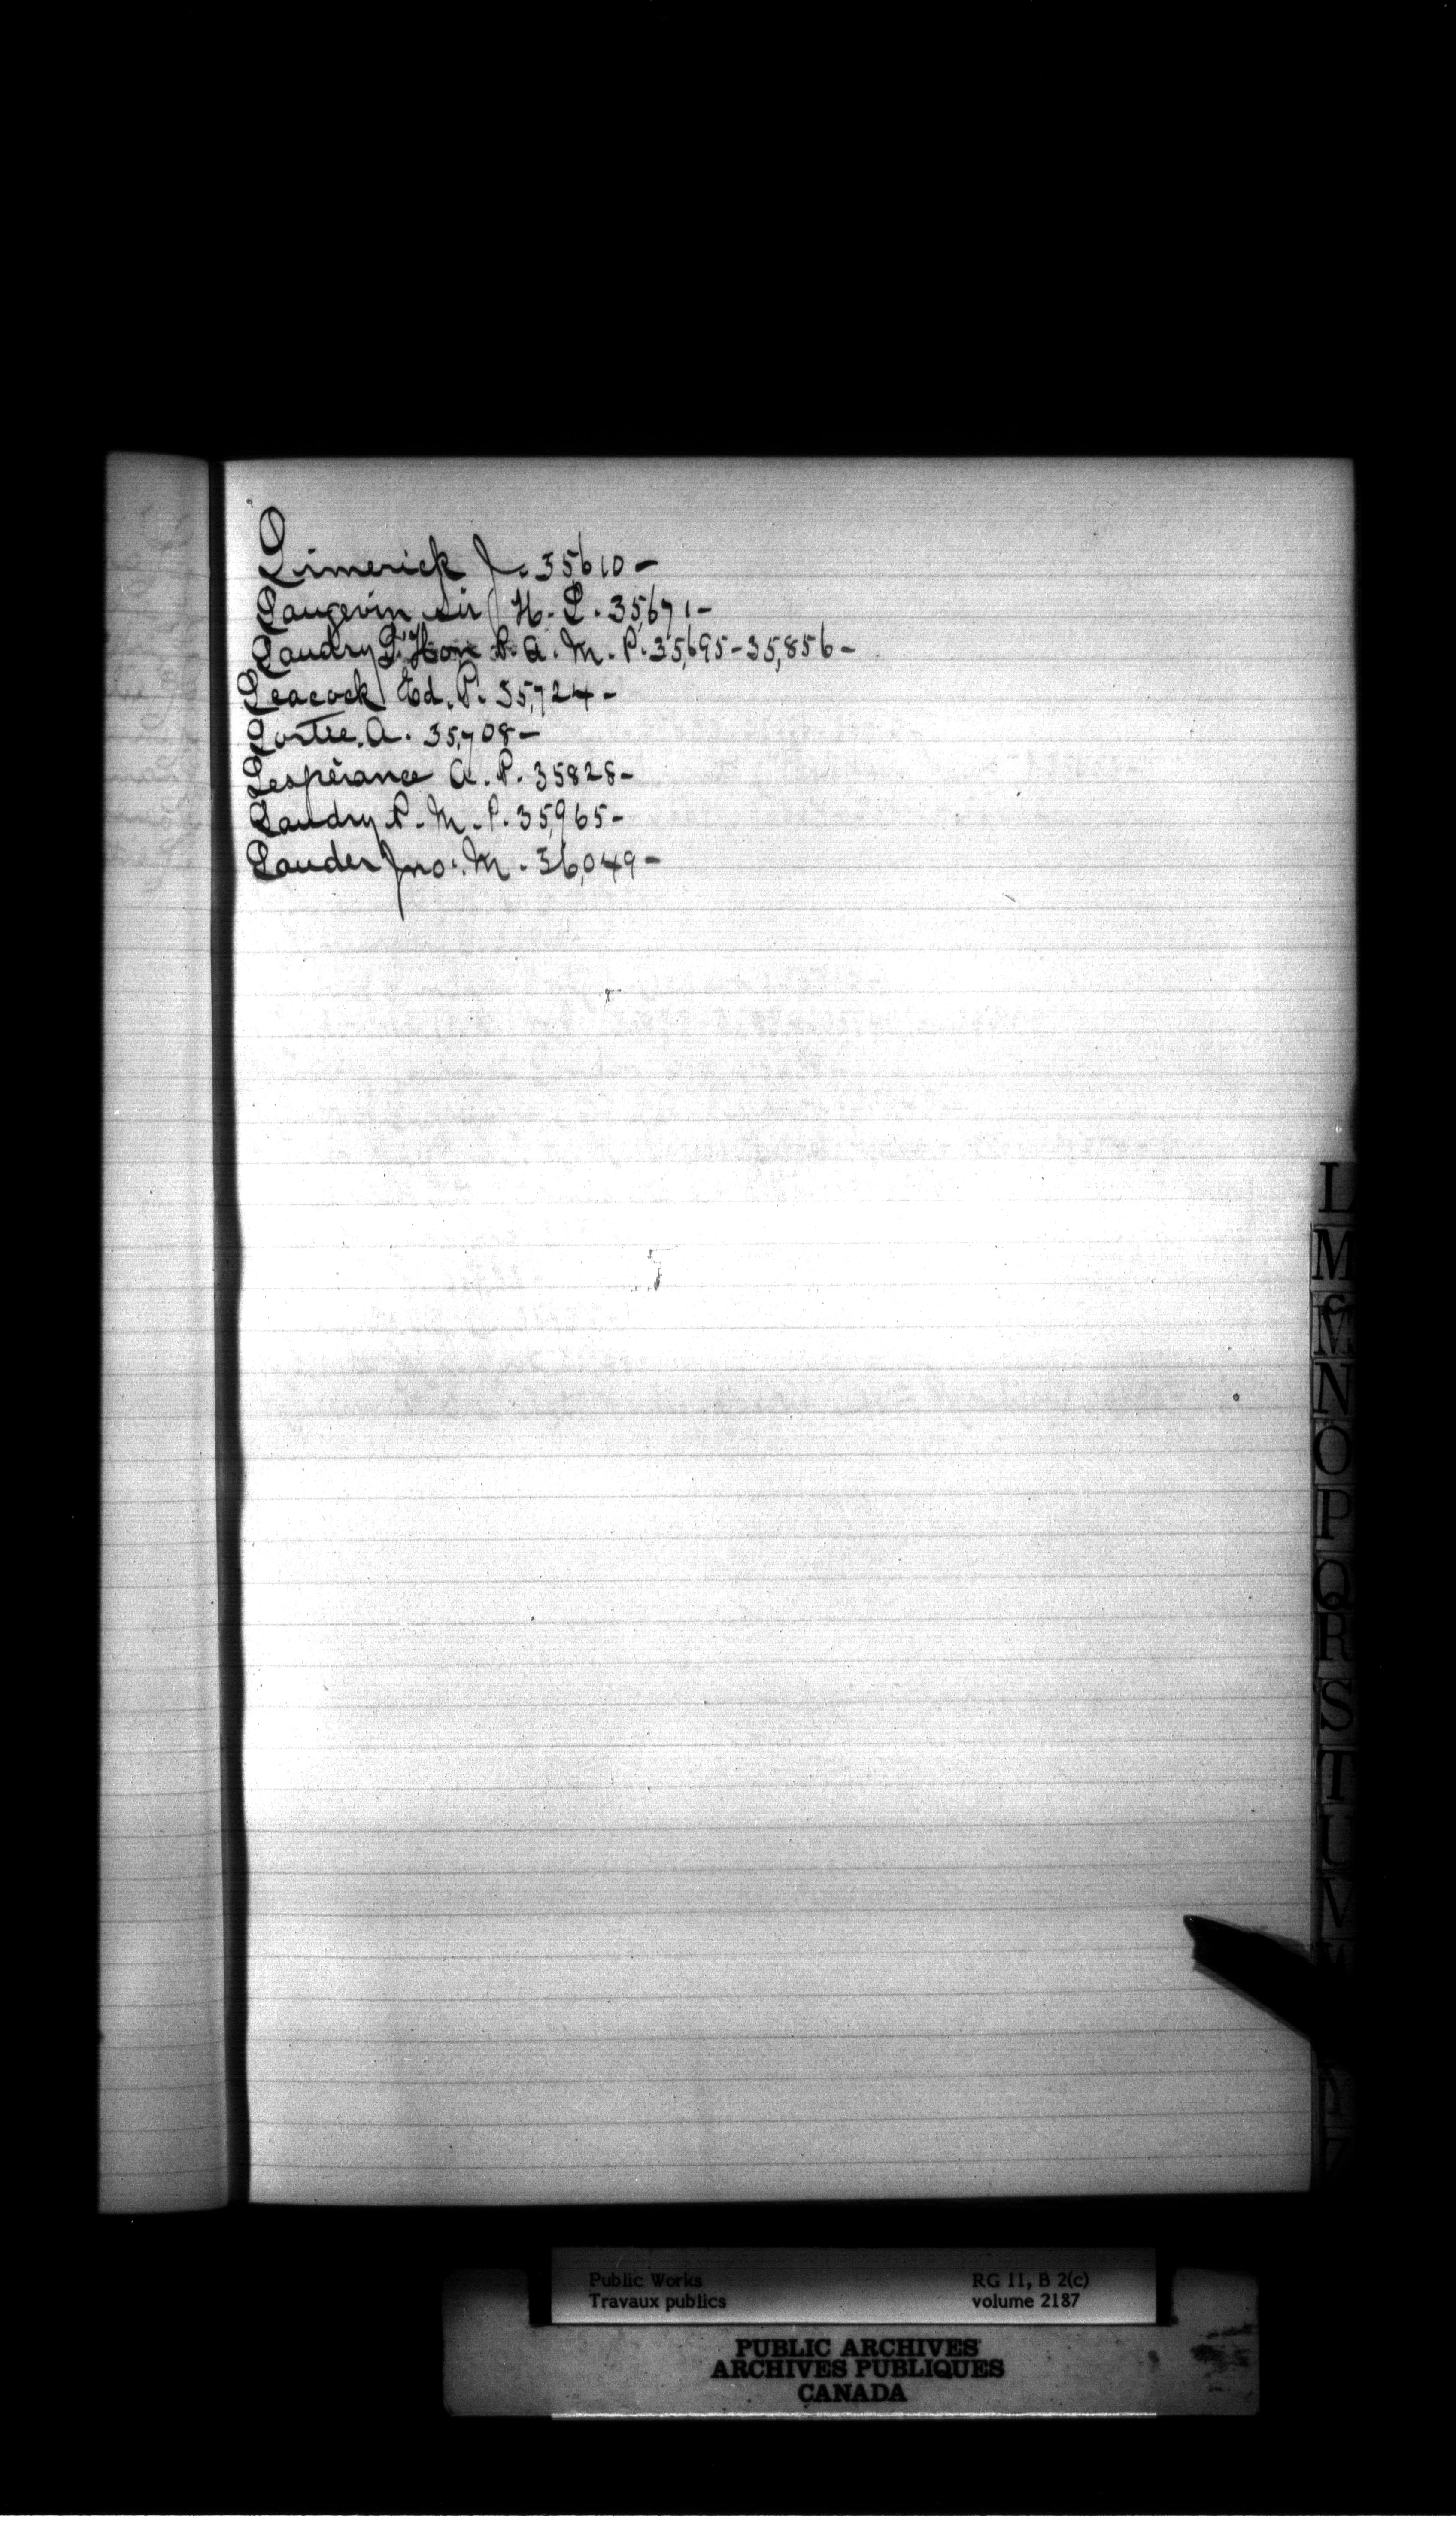 Limerick J. 35610-
Langevin Sir H. L. 35,671-
Landry L'Hon P. A. M. P. 35,695-35,856-
Leacock Ed. P. 35,724-
Lortie. A. 35,708-
Lespérance A. P. 35828-
Landry P. M. P. 35,965-
Lauder Jno. M. 36,049-
L
M
Mc
N
O
P
Q
R
S
T
U
V
W
Public Works
Travaux publics
RG 11, B 2(c)
volume 2187
PUBLIC ARCHIVES
ARCHIVES PUBLIQUES
CANADA